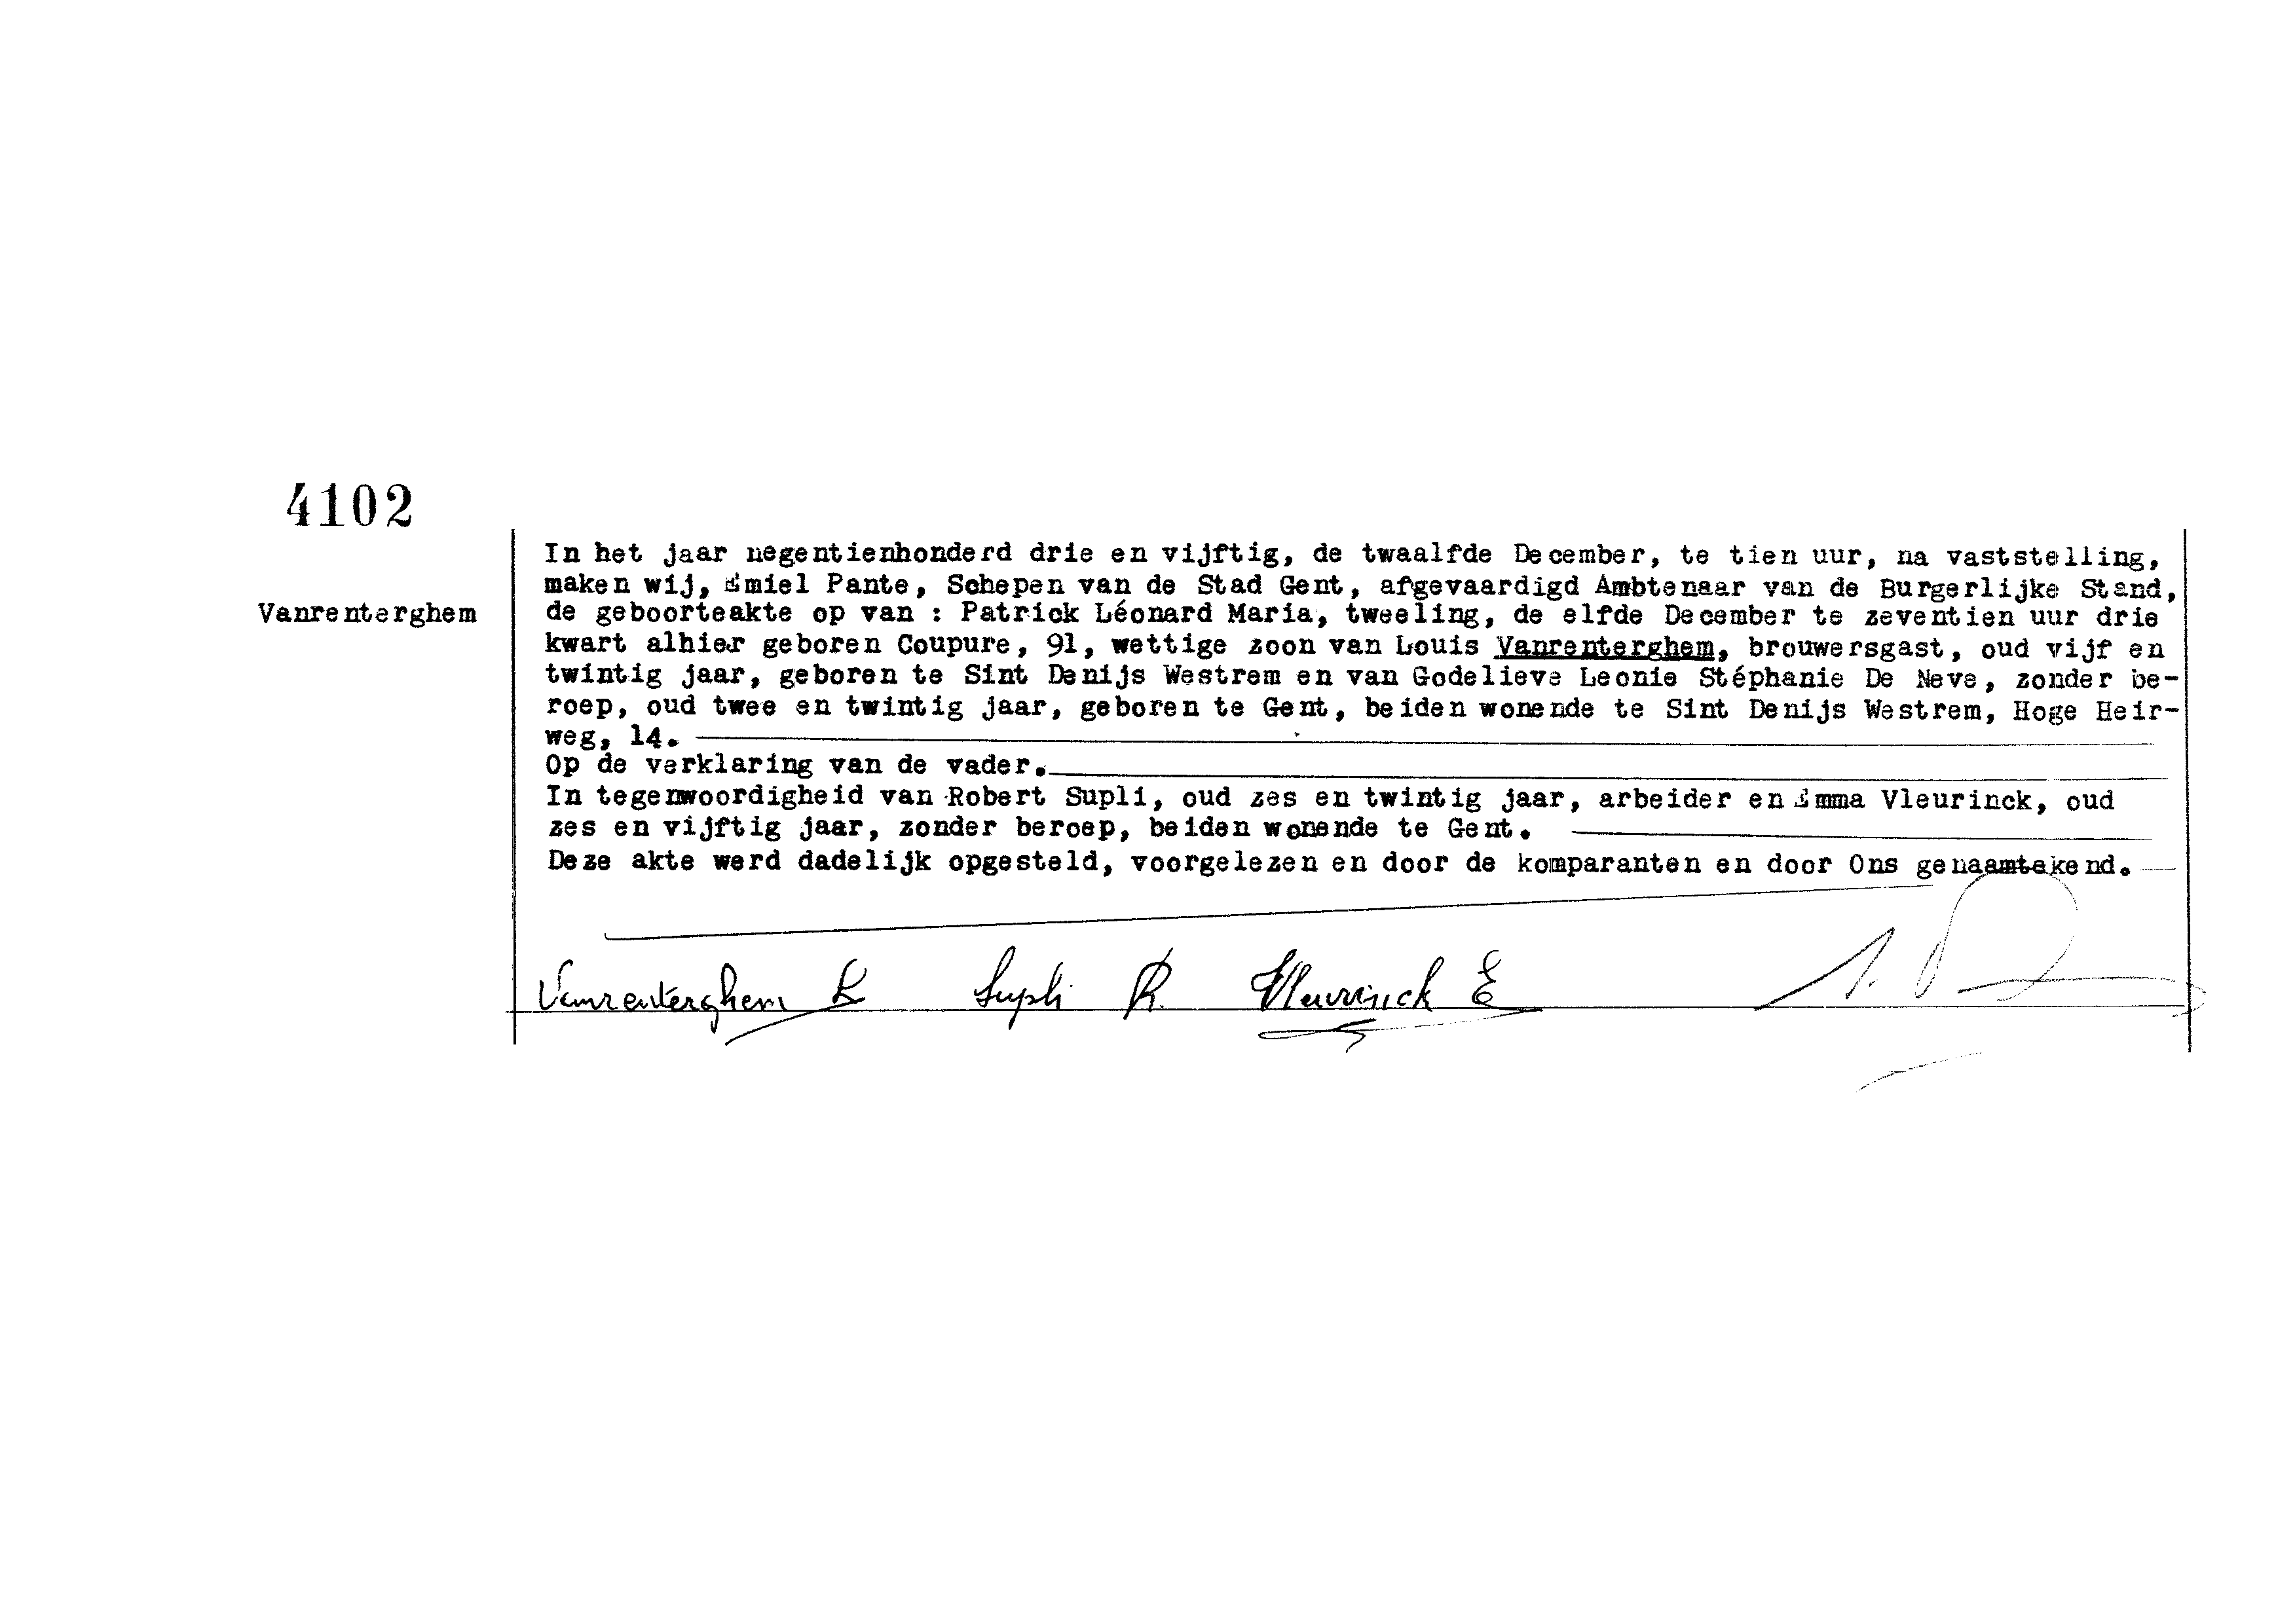 4102
In het jaar negentienhonderd drie en vijftig, de twaalfde December, te tien uur, na vaststelling,
maken wij, Emiel Pante, Schepen van de Stad Gent, afgevaardigd Ambtenaar van de Burgerlijke Stand,
Vanrenterghem
de geboorteakte op van : Patrick Léonard Maria, tweeling, de elfde December te zeventien uur drie
kwart alhier geboren Coupure, 91, wettige zoon van Louis Vanrenterghem, brouwersgast, oud vijf en
twintig jaar, geboren te Sint Denijs Westrem en van Godelieve Leonie Stéphanie De Neve, zonder be-
roep, oud twee en twintig jaar, geboren te Gent, beiden wonende te Sint Denijs Westrem, Hoge Heir-
weg, 14.
Op de verklaring van de vader.
In tegenwoordigheid van Robert Supli, oud zes en twintig jaar, arbeider en Emma Vleurinck, oud
zes en vijftig jaar, zonder beroep, beiden wonende te Gent.
Deze akte werd dadelijk opgesteld, voorgelezen en door de komparanten en door Ons genaamtekend.
Vanrenterghem L Supli R. Vleurinck E